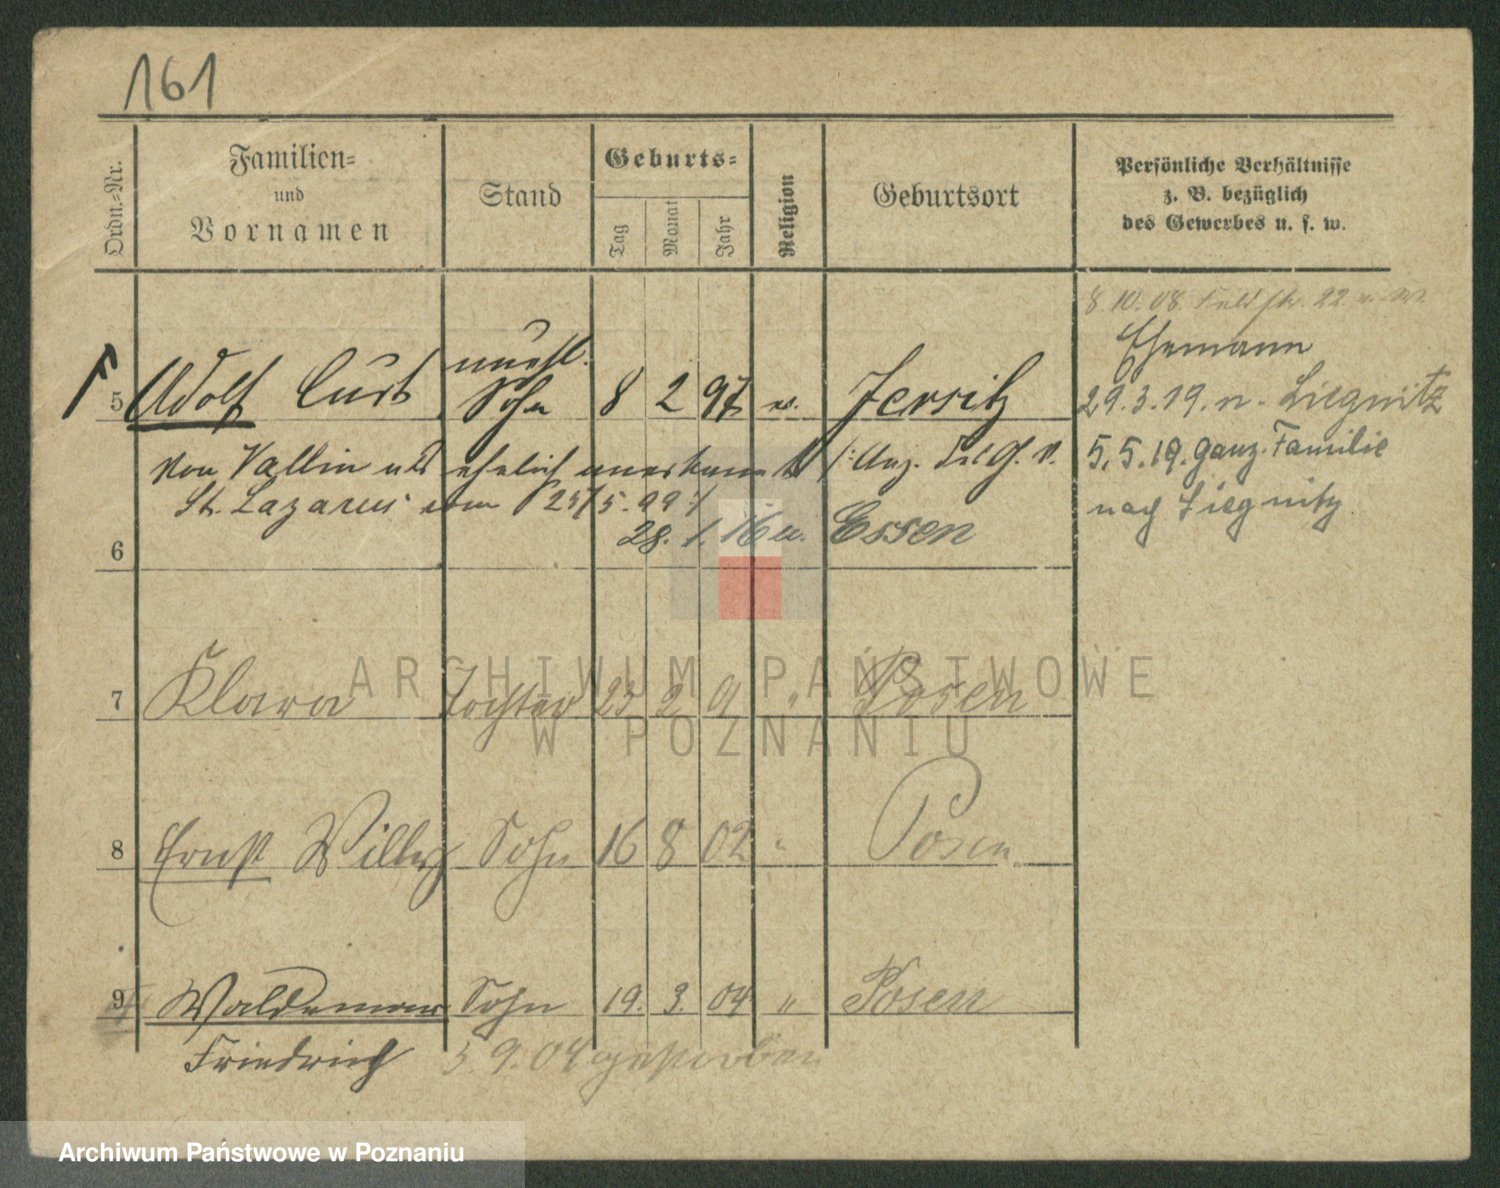 161
Ordn.-Nr.
Familien-
und
Vornamen
Stand
Geburts-
Tag
Monat
Jahr
Religion
Geburtsort
Persönliche Verhältnisse
z. B. bezüglich
des Gewerbes u. s. w.
8.10.08. Feldstr. 22.
Ehemann
29.3.19. n. Liegnitz
5.5.19. ganz. Familie
nach Liegnitz
5 Adolf Curt unehl. Sohn 8 2 97 Jersitz
von Vallin als ehelich anerkannt
St. Lazarus vom 25/5. 99
6 28. 1. 16 Essen
7 Klara Tochter 23 2 9 " Posen
8 Ernst Willy Sohn 16 8 02 " Posen
9 Waldemar Sohn 19. 3. 04 " Posen
Friedrich 5.9.04 gestorben
ARCHIWUM PAŃSTWOWE
W POZNANIU
Archiwum Państwowe w Poznaniu